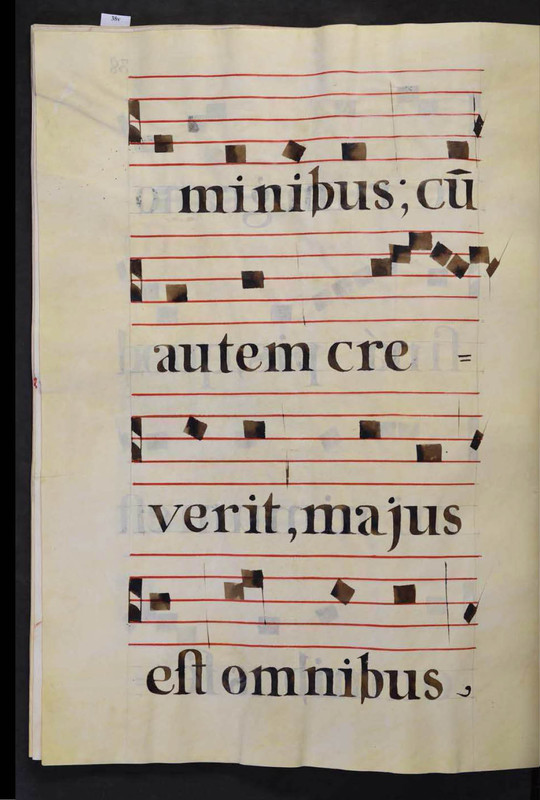 minibus; cū
autem cre =
verit, majus
eſt omnibus,